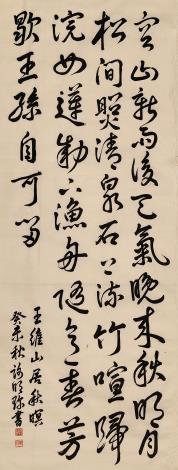 空山新雨後天氣晚来秋明月
松间照清泉石上流竹喧歸
浣女蓮動下漁舟隨意春芳
歇王孫自可留
王維山居秋暝
癸未秋書